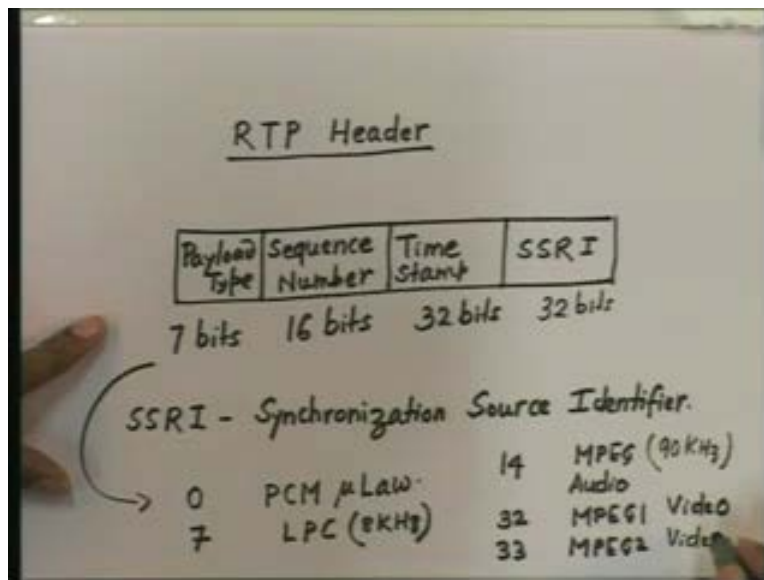 RTP Header
Payload Type Sequence Number Time Stamp SSRI
7 bits 16 bits 32 bits 32 bits
SSRI - Synchronization Source Identifier.
0 PCM μ Law.
7 LPC (8KHz)
14 MPEG (90KHz) Audio
32 MPEG1 Video
33 MPEG2 Video